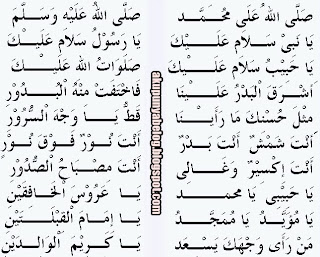 صَلَّى اللهُ عَلَى مُحَمَّد صَلَّى اللهُ عَلَيْهِ وَسَلَّم
يَا نَبِىْ سَلَام عَلَيْكَ يَا رَسُوْلْ سَلَام عَلَيْكَ
يَا حَبِيبْ سَلَام عَلَيْكَ صَلَوَاتُ الله عَلَيْكَ
اَشْرَقَ الْبَدْرُ عَلَيْنَا فَاخْتَفَتْ مِنْهُ الْبُدُورُ
مِثْلَ حُسْنِكَ مَا رَأَيْنَا قَطُّ يَا وَجْهَ السُّرُورِ
أَنْتَ شَمْسٌ أَنْتَ بَدْرٌ أَنْتَ نُورٌ فَوْقَ نُورٍ
أَنْتَ إِكْسِيْرٌ وَغَالِى أَنْتَ مِصْبَاحُ الصُّدُوْرِ
يَا حَبِيْبِى يَا مُحَمَد يَا عَرُوْسَ الْخَافِقَيْنِ
يَا مُؤَيَّدْ يَا مُمَجَّدْ يَا إِمَامَ الْقِبْلَتَيْنِ
مَنْ رَأَى وَجْهَكَ يَسْعَد يَا كَرِيْمَ الْوَالِدَيْنِ